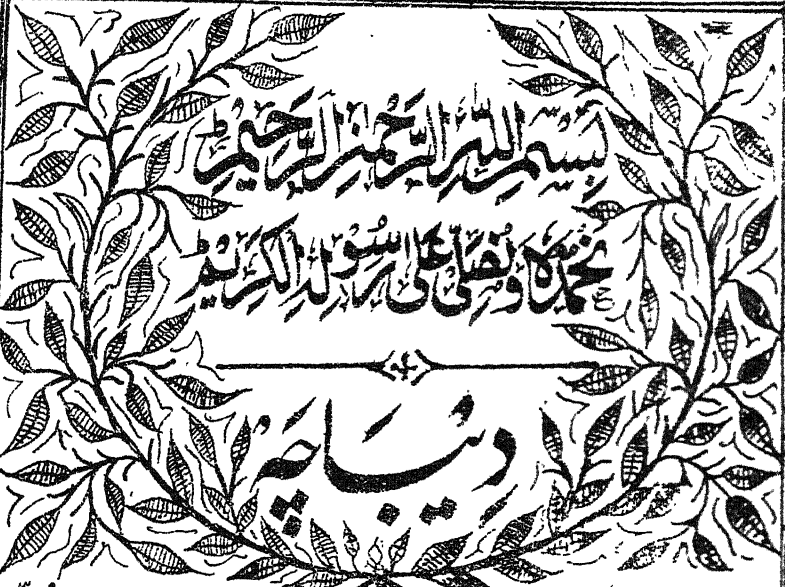 بِسْمِ اللّٰهِ الرَّحْمٰنِ الرَّحِیْمِ
نَحْمَدُهٗ وَنُصَلِّیْ عَلٰی رَسُوْلِهِ الْکَرِیْمِ
دیباچہ